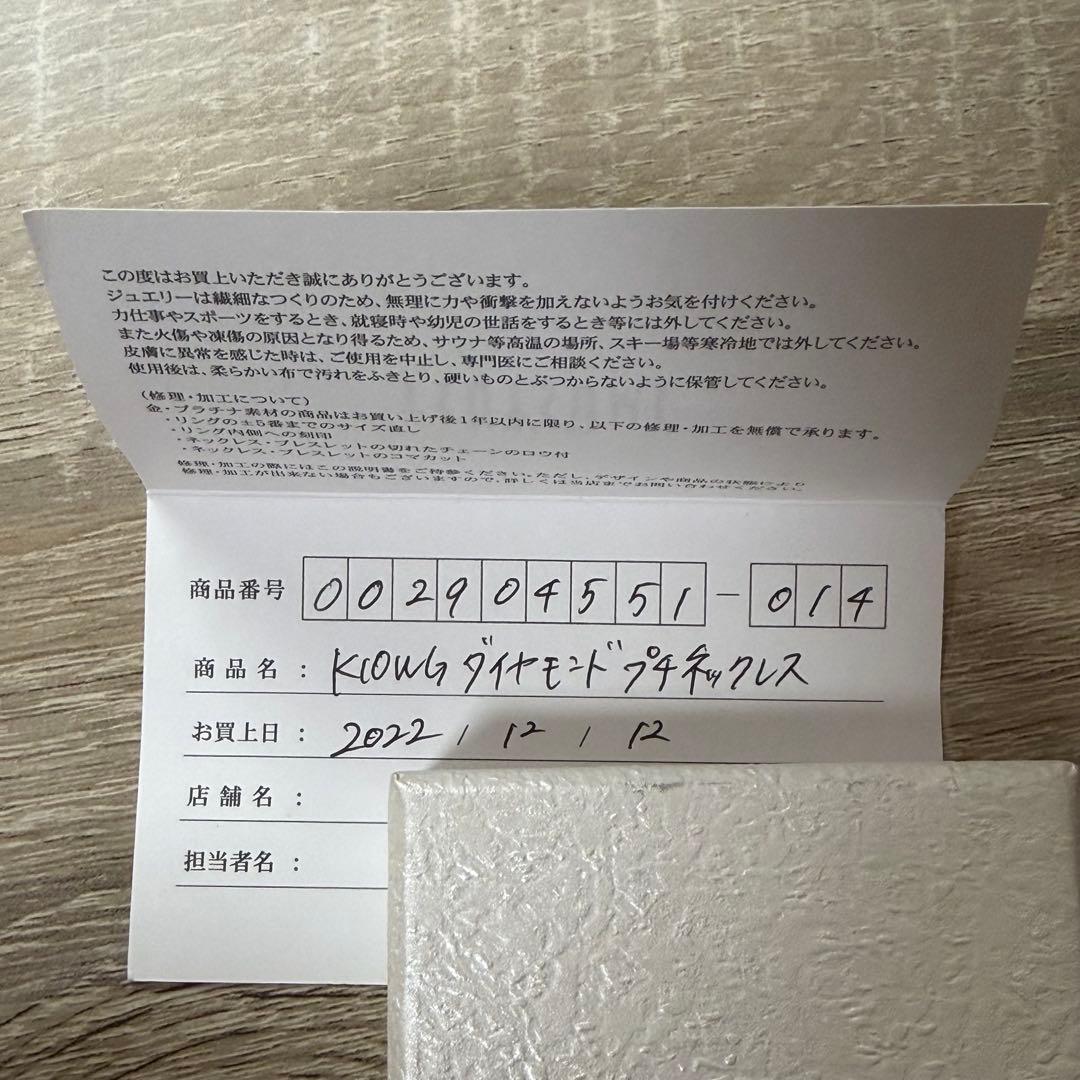 この度はお買上いただき誠にありがとうございます。
ジュエリーは繊細なつくりのため、無理に力や衝撃を加えないようお気を付けください。
力仕事やスポーツをするとき、就寝時や幼児の世話をするとき等には外してください。
また火傷や凍傷の原因となり得るため、サウナ等高温の場所、スキー場等寒冷地では外してください。
皮膚に異常を感じた時は、ご使用を中止し、専門医にご相談ください。
使用後は、柔らかい布で汚れをふきとり、硬いものとぶつからないように保管してください。
(修理・加工について)
金・プラチナ素材の商品はお買い上げ後1年以内に限り、以下の修理・加工を無償で承ります。
・リングの±5番までのサイズ直し
・リング内側への刻印
・ネックレス・ブレスレットの切れたチェーンのロウ付
・ネックレス・ブレスレットのコマカット
修理・加工の際にはこの説明書をご持参ください。ただし、デザインや商品の状態により
修理・加工が出来ない場合もございますので、詳しくは当店までお問い合わせください。
商品番号 002904551-014
商品名 : K10WG ダイヤモンドプチネックレス
お買上日 : 2022 / 12 / 12
店舗名 :
担当者名 :